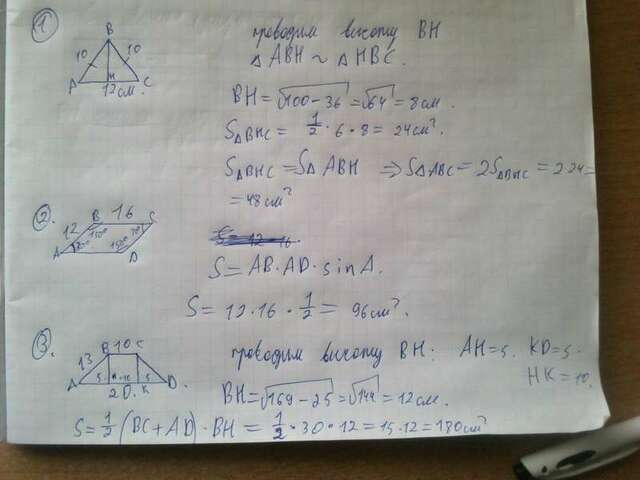 1
B
10 10
A H C
12 см.
проводим высоту BH
△ ABH ~ △ HBC.
BH = √100-36 = √64 = 8 см.
S△BHC = 1/2 · 6 · 8 = 24 см²
S△BHC = S△ ABH ⇒ S△ABC = 2S△BHC = 2·24 =
= 48 см²
2.
B 16 C
12 150°
A 150° D
S = AB · AD · sin A.
S = 12 · 16 · 1/2 = 96 см².
3.
B 10 C
13
A 5 H 10 K 5 D.
20.
проводим высоту BH: AH=5. KD=5.
HK=10.
BH = √169-25 = √144 = 12 см.
S = 1/2 (BC + AD) · BH = 1/2 · 30 · 12 = 15·12 = 180 см²